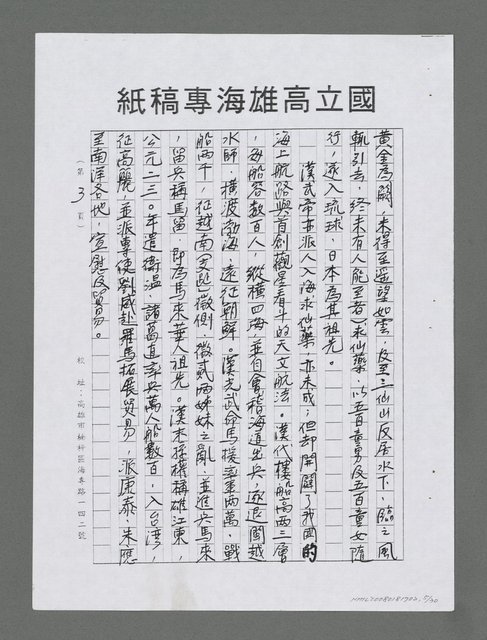 國立高雄海專稿紙
黃金為闕，未得至遥望如雲，及至三仙山反居水下，臨之風
輒引去，終未有人能至者）求仙藥，以五百童男及五百童女隨
行，遂入琉球，日本為其祖先。
漢武帝並派人入海求仙藥，亦未成；但却開闢了我國的
海上航路與首創觀星看斗的天文航法。漢代樓船高西三層
，每船容數百人，縱橫四海，並自會稽海道出兵，逐退閩越
水師，橫渡渤海，遠征朝鮮。漢光武命馬援率兵兩萬，戰
船兩千，征越南交趾徵側、徵貳兩姊妹之亂，並進兵馬來
，留兵稱馬留，即為馬來華人祖先。漢末孫權稱雄江東，
公元二三○年遣衛溫、諸葛直率兵萬人船數百，入台灣，
征高麗，並派專使劉威赴羅馬拓展貿易，派康泰、朱應
至南洋各地，宣慰及貿易。
（第3頁）
校址：高雄市楠梓區海專路一四二號
NMHL20080181902,5/30